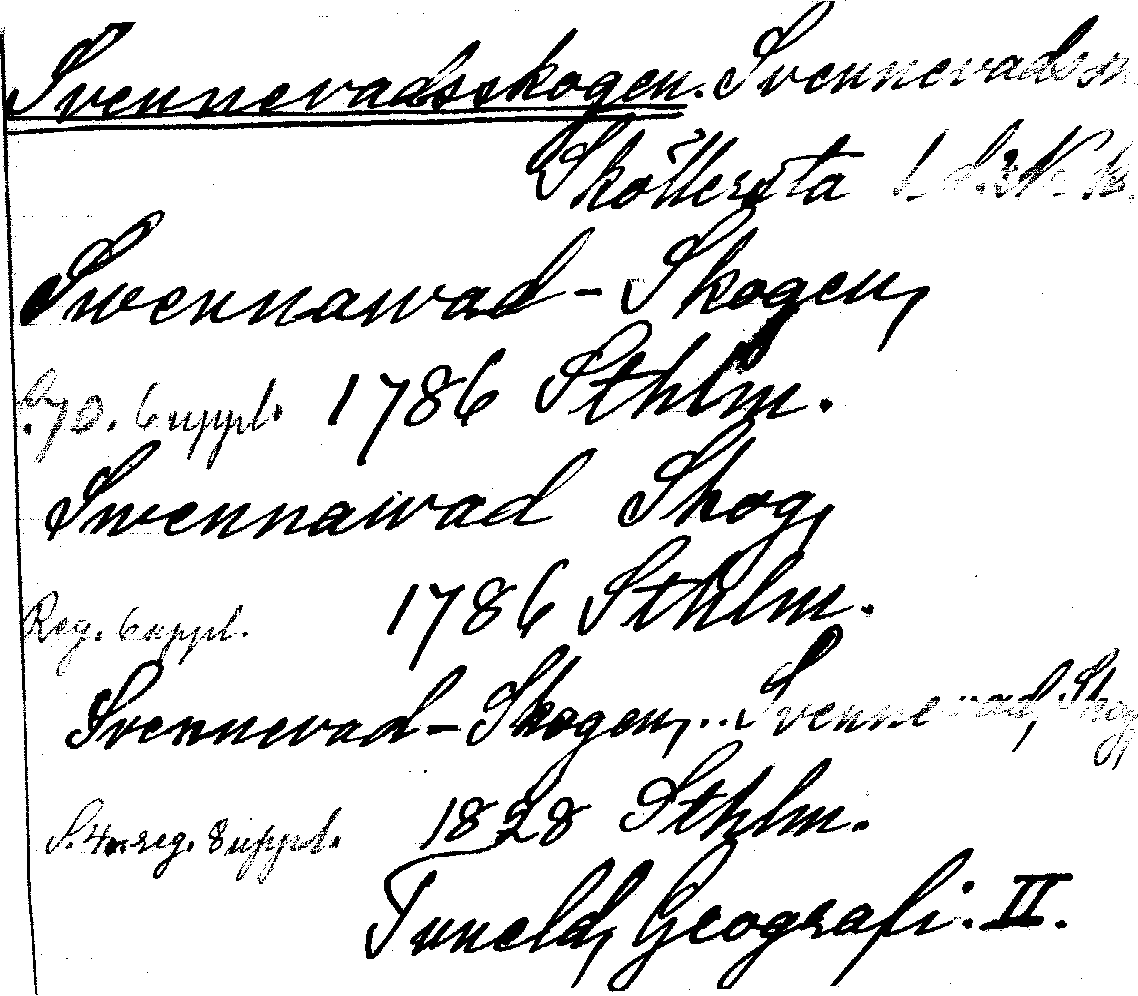 Svennevadsskogen. Svennevads
Sköllersta
Swennawad-Skogen,
S. 70. 6 uppl. 1786 Sthlm.
Swennawad Skog,
Reg. 6 uppl. 1786 Sthlm.
Svennevad-Skogen,.. Svennevad, Skog,
reg. 8 uppl. 1828 Sthlm.
Tuneld, Geografi. II.